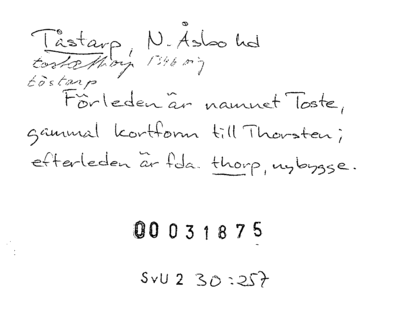 Tåstarp, N. Åsbo hd
tostæthorp 1346 orig
töstarp
Förleden är namnet Toste,
gammal kortform till Thorsten;
efterleden är fda. thorp, nybygge.
00031875
SvU 2 30:257